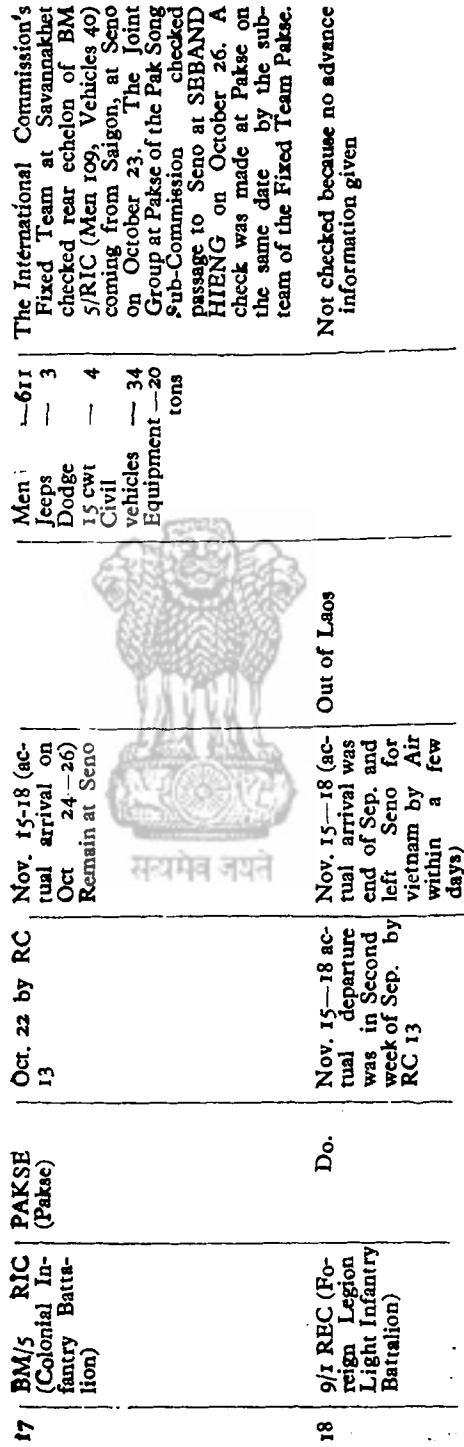 17
BM/5 RIC
(Colonial In-
fantry Batta-
lion)
PAKSE
(Pakse)
Oct. 22 by RC
13
Nov. 15-18 (ac-
tual arrival on
Oct 24—26)
Remain at Seno
Men —611
Jeeps — 3
Dodge
15 cwt — 4
Civil
vehicles — 34
Equipment —20
tons
The International Commission's
Fixed Team at Savannakhet
checked rear echelon of BM
5/RIC (Men 109, Vehicles 40)
coming from Saigon, at Seno
on October 23. The Joint
Group at Pakse of the Pak Song
Sub-Commission checked
passage to Seno at SEBAND
HIENG on October 26. A
check was made at Pakse on
the same date by the sub-
team of the Fixed Team Pakse.
18
9/1 REC (Fo-
reign Legion
Light Infantry
Battalion)
Do.
Nov. 15—18 ac-
tual departure
was in Second
week of Sep. by
RC 13
Nov. 15—18 (ac-
tual arrival was
end of Sep. and
left Seno for
vietnam by Air
within a few
days)
Out of Laos
Not checked because no advance
information given
सत्यमेव जयते